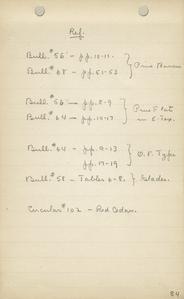 Ref:
Bull. #56 - pp. 10-11.
Bull. #68 - pp. 51-53 } Pine Barrens
Bull. #56 - pp. 8-9
Bull. #64 - pp. 10-17 } Pine Flats in E. Tex.
Bull. #64 - pp. 9-13
pp. 17-19 } O. P. Type
Bull. #58 - Tables 6-8. } Glades.
Circular #102 - Red Cedar.
84